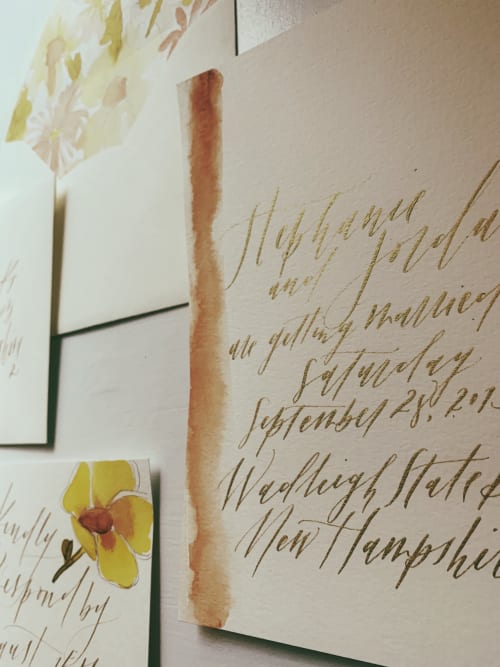 Stephanie
and Jorda
are getting married
Saturday
September 28, 201
Wadleigh State P
New Hampshire
Kindly
respond by
August